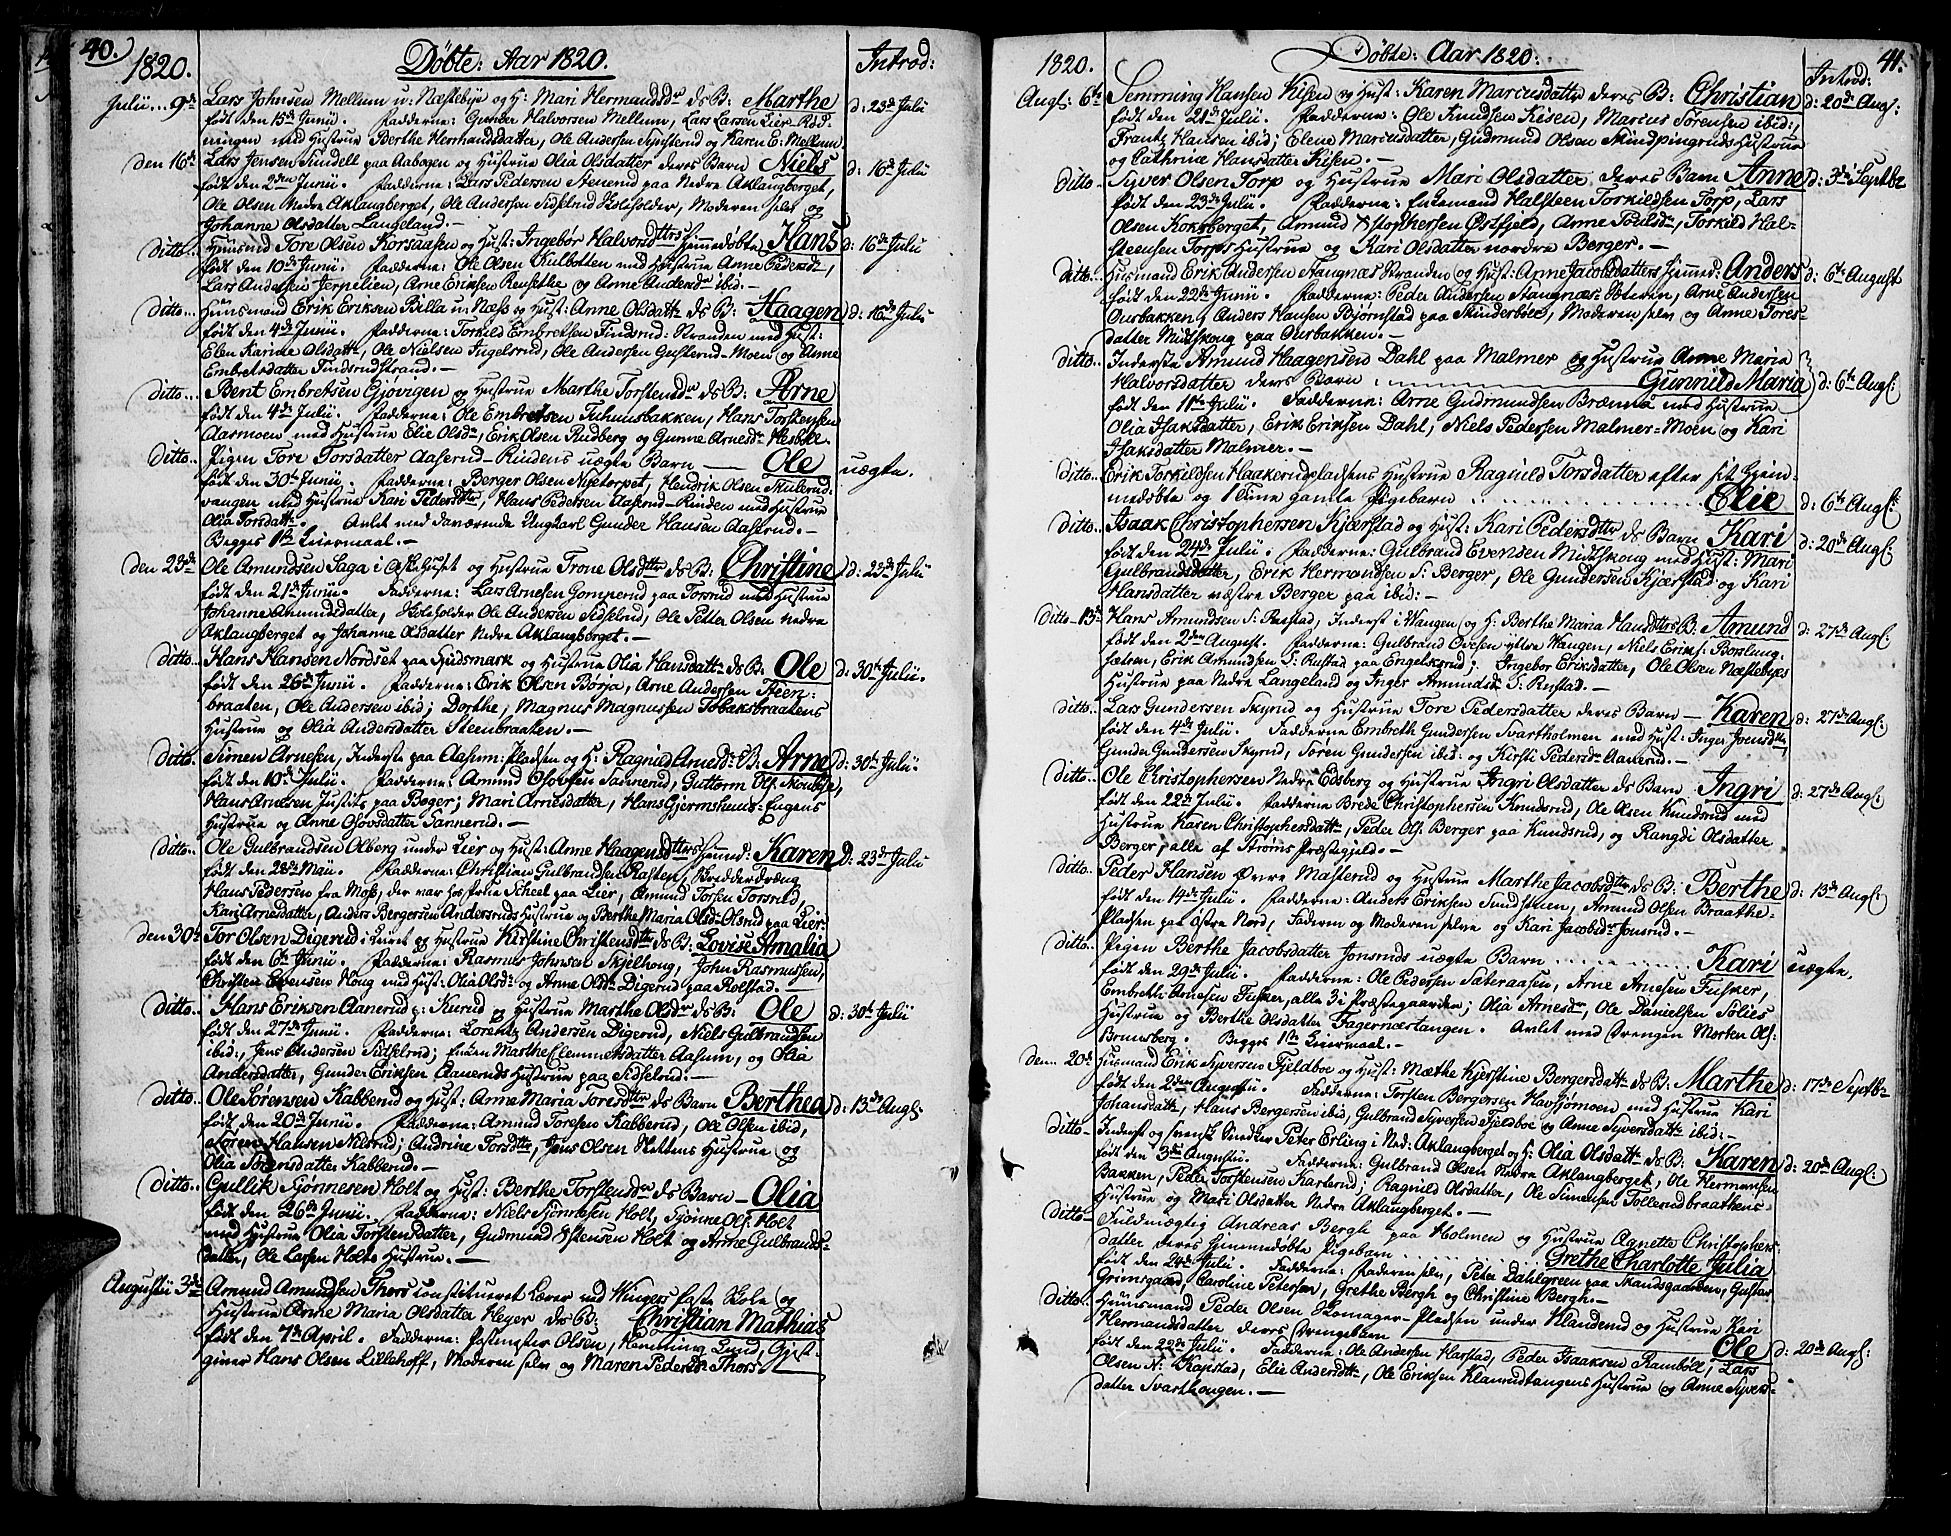 40.
1820.
Döbte: Aar 1820.
Introd:
Julii... 9de Lars Johnsen Mellum u: Næstebye og H: Mari Hermandsdr ds B: Marthe d: 23de Julii
født den 15de Junii. Fadderne: Gunder Halvorsen Mellum, Lars Larsen Lier
med Hustrue Berthe Hermandsdatter, Ole Andersen og Karen E: Mellum
den 16de Lars Jensen Sundell paa Aabogen og Hustrue Olia Olsdatter deres Barn Niels d: 16de Julii
født den 2den Junii. Fadderne: Lars Pedersen Stenerud paa Nedre Aklangberget,
Ole Olsen Nedre Aklangberget, Ole Andersen Sidselrud Skoleholder, Moderen selv og
Johanne Olsdatter Langeland.-
ditto.. Huusmd Tore Olsen Korsaasen og Hust: Ingebor Halvorsdttrs hjemmedøbte Hans d: 16de Julii
født den 10de Junii. Fadderne: Ole Olsen Kulbotten med Hustrue Anne Pedersdr,
Lars Andersen Jerpelien, Arne Eriksen og Anne Andersdr ibid:-
ditto... Huusmand Erik Eriksen Billa u: Næss og Hust: Anne Olsdattr ds B: Haagen d: 16de Julii
født den 4de Junii. Fadderne: Torkild Embretsen Findsrud-Stranden med Hust:
Elen Karine Olsdattr, Ole Nielsen Ingelsrud, Ole Andersen Gusterud-Moen og Anne
Embretsdatter Findsrudstrand.-
ditto... Bent Embretsen Gjøvigen og Hustrue Marthe Torstensdr ds B: Arne
født den 4de Julii. Fadderne: Ole Embretsen Tuhuusbakken, Hans Torstensen
Aasmoen med Hustrue Elie Olsdr, Erik Olsen Rudberg og Gunne Arnesdr
ditto.. Pigen Tore Torsdatter Aaserud-Rudens uægte Barn — Ole uægte.
født den 30te Junii. Fadderne: Berger Olsen Nistorpet, Hendrik Olsen Skulerud-
vangen med Hustrue Kari Pedersdttr, Hans Pedersen Aaserud-Ruden med Hustrue
Olia Torsdattr. Avlet med daværende Ungkarl Gunder Hansen Aaserud.-
Begges 1ste Leiermaal.-
den 23de Ole Amundsen Saga i og Hustrue Trone Olsdttr ds B: Christine d: 23de Julii
født den 21de Junii. Fadderne: Lars Arnesen Gomperud paa Torsrud med Hustrue
Johanne Amundsdatter, Skoleholder Ole Andersen Sidselrud, Ole Petter Olsen nedre
Aklangberget og Johanne Olsdatter Nedre Aklangberget.-
ditto.. Hans Hansen Nordset paa Eidsmark og Hustrue Olia Hansdattr ds B: Ole d: 30te Julii.
født den 26de Junii. Fadderne: Erik Olsen Børja, Arne Andersen Steen-
braaten, Ole Andersen ibid; Dorthe, Magnus Magnussen Tobaksbraatens
Hustrue og Olia Andersdatter Steenbraaten.-
ditto.. Simen Arnesen, Inderst paa Aasum-Pladsen og H: Ragnild Arnesdr: B: Arne d: 30te Julii.
født den 10de Julii. Fadderne: Amund Olovsen Sannerud, Guttorm Ols: Skovbye,
Hans Arnesen Justits paa Boger; Mari Arnesdatter, Hans Gjermshuus-Engens
Hustrue og Anne Olovsdatter Sannerud.-
ditto.. Ole Gulbrandsen Olberg under Lier og Hust: Anne Haagensdttrs hjemmed: Karen d: 23de Julii
født den 28de Maii. Fadderne: Christian Gulbrandsen Kasten,
Hans Pedersen fra Moss, der var hos Frue Scheel paa Lier, Amund Torsen Torsrud,
Kari Arnesdatter, Anders Bergersen Andersruds Hustrue og Berthe Maria Olsdr Olsrud paa Lier.
den 30te Tor Olsen Digerud i Lunet og Hustrue Kirstine Christensdttr ds B: Lovise Amalia
født den 6te Junii. Fadderne: Rasmus Johnsen Skjelhoug, John Rasmussen,
Christen Evensen Houg med Hust: Olia Olsdr og Anne Olsdr Digerud paa Rolstad.-
ditto.. Hans Eriksen Aanerud p: Kurud og Hustrue Marthe Olsdr ds B: Ole d: 30te Julii
født den 27de Junii. Fadderne: Lorentz Andersen Digerud, Niels Gulbrandsen
ibid:, Jens Andersen Sidselrud; Enken Marthe Clemmetsdatter Aasum, og Olia
Andersdatter, Gunder Eriksen Aaneruds Hustrue paa Sidselrud.-
ditto.. Ole Sørensen Kabberud og Hust: Anne Maria Toresdttr ds Barn Berthea d: 13de Augs:
født den 20de Junii. Fadderne: Amund Toresen Kabberud, Ole Olsen ibid,
Søren Hansen Nilsrud; Andrine Torsdttr, Jens Olsen Slettens Hustrue og
Olia Sørensdatter Kabberud.-
ditto.. Gullik Sjønnesen Holt og Hust: Berthe Torstensdr ds Barn — Olia
født den 26de Junii. Fadderne: Niels Sjønnesen Holt, Sjønne Ols: Holt
med Hustrue Olia Torstensdatter, Gudmund Østensen Holt og Anne Gulbrands-
datter, Ole Larsen Holts Hustrue.-
Augustii 3de Amund Amundsen Thors constitueret Lærer ved Wingers faste Skole og
Hustrue Anne Maria Olsdatter Heyer ds B: Christian Mathias
født den 7de April. Fadderne: Postmester Olsen, Henning Lund, Gjest-
giver Hans Olsen Lillehoff, Moderen selv og Maren Pedersdr Thors.
41.
1820.
Döbte: Aar 1820.
Introd:
Augs: 6te Semming Hansen Kisen og Hust: Karen Marcusdattr deres B: Christian d: 20de Augs:
født den 21de Julii. Fadderne: Ole Knudsen Kisen, Marcus Sørensen ibid:,
Frantz Hansen ibid; Elene Marcusdatter, Gudmund Olsen Hustrue
og Cathrine Hansdatter Kisen.-
ditto.. Syver Olsen Torp og Hustrue Mari Olsdatter deres Barn Anne d: 3de Septbr
født den 23de Julii. Fadderne: Enkemand Halsteen Torkildsen Torp, Lars
Olsen Koksberget, Amund Østmoe, Arne Poulsdr, Torkild Hal-
steensen Torps Hustrue og Kari Olsdatter nordre Berger.-
ditto.. Huusmand Erik Andersen Stangnæs-Stranden og Hust: Anne Jacobsdatters hjemmed: Anders d: 6te August
født den 22de Junii. Fadderne: Peder Andersen Stangnæs-Odderen, Arne Andersen
Ourbakken, Anders Hansen Bjørnstad paa Skinderboel, Moderen selv og Anne Tores-
datter Midtskoug paa Ourbakken.-
ditto.. Inderste Amund Haagensen Dahl paa Malmer og Hustrue Anne Maria
Halvorsdatter deres Barn — Gunnild Maria d: 6te Augs:
født den 11te Julii. Fadderne: Arne Gudmundsen Brænna med Hustrue
Olia Isaksdatter, Erik Eriksen Dahl, Niels Pedersen Malmer-Moen og Kari
Isaksdatter Malmer.-
ditto.. Erik Torkildsen Haakerudpladsens Hustrue Ragnild Torsdatter efter sit hjem-
medøbte og 1 Time gamle Pigebarn .......... Elie d: 6te Augs:
ditto.. Isaak Christophersen Kjærstad og Hust: Kari Pedersdttr ds Barn Kari d: 20de Augs:
født den 24de Julii. Fadderne: Gulbrand Evensen Midtskoug med Hust: Mari
Gulbrandsdatter, Erik Hermandsen S: Berger, Ole Gundersen Kjærstad og Kari
Hansdatter væstre Berger paa ibid:-
ditto_13de Hans Amundsen S: Rustad, Inderst i Wangen og H: Berthe Maria Hansdttrs B: Amund d: 27de Augs:
født den 2den August. Fadderne: Gulbrand Ovesen yttre Wangen, Niels Eriks: Borslung-
sætren, Erik Amundsen S: Rustad paa Engelskrud; Ingebor Eriksdatter, Ole Olsen Næstebyes
Hustrue paa Nedre Langeland og Inger Amundsdr S: Rustad.-
ditto.. Lars Gundersen Skyrud og Hustrue Tore Pedersdatter deres Barn — Karen d: 27de Augs:
født den 4de Julii. Fadderne Embreth Gundersen Svartholmen med Hust: Inger Joensdttr,
Gunder Gundersen Skyrud, Søren Gundersen ibid: og Kirsti Pedersdr Aanerud.-
ditto.. Ole Christophersen Nedre Edsberg og Hustrue Ingri Olsdatter ds Barn — Ingri d: 27de Augs:
født den 22de Julii. Fadderne Brede Christophersen Knudsrud, Ole Olsen Knudsrud med
Hustrue Karen Christophersdattr, Peder Ols: Berger paa Knudsrud, og Rangdi Olsdatter
Berger, alle af Strøms Præstegjeld.-
ditto.. Peder Hansen Øvre Masterud og Hustrue Marthe Jacobsdttr ds B: Berthe d: 13de Augs:
født den 14de Julii. Fadderne: Anders Eriksen Sundhuuen, Amund Olsen Braathe-
Pladsen paa østre Nord, Faderen og Moderen selve og Kari Jacobsdr Jonsrud.-
ditto.. Pigen Berthe Jacobsdatter Jonsruds uægte Barn ...... Kari uægte.
født den 29de Julii. Fadderne: Ole Pedersen Sæteraasen, Arne Arnesen Fusker,
Embreth Arnesen Fusker, alle 3 i Præstegaarden; Olia Arnesdr, Ole Danielsen Solies
Hustrue og Berthe Olsdatter Fagernæstangen. Avlet med Drengen Morten Ols:
Brunsberg. Begges 1ste Leiermaal.-
den.. 20de Huusmand Erik Syversen Fjeldboe og Hust: Mæthe Kjerstine Bergersdattr ds B: Marthe d: 17de Septbr
født den 2den Augustii. Fadderne: Torsten Bergersen Havsjømoen med Hustrue Kari
Johansdattr, Hans Bergersen ibid, Gulbrand Syversen Fjeldboe og Anne Syversdattr ibid:-
ditto_ Inderst og Svensk Snedker Peter Erling i Ned: Aklangberget og H: Olia Olsdattr ds B: Karen d: 20de Augs:
født den 3de Augustii. Fadderne: Gulbrand Olsen Nedre Aklangberget, Ole Hermansen
Bakken, Peder Torstensen Karterud; Ragnild Olsdatter, Ole Simensen Tollerudbraathens-
Hustrue og Mari Olsdatter Nedre Aklangberget.-
ditto_ Fuldmægtig Andreas Bergh paa Holmen og Hustrue Agnette Christophers-
datter deres hjemmedøbte Pigebarn ........ Grethe Charlotte Julia
født den 24de Julii. Fadderne: Faderen selv, Peter Dahlgreen paa Skandsgaarden, Gustav
Grimsgaard, Caroline Petersen, Grethe Bergh og Christine Bergh.-
ditto.. Huusmand Peder Olsen Skomager-Pladsen under Klanderud og Hustrue Kari
Hermandsdatter deres Drengebarn — Ole d: 20de Augs:
født den 22de Julii. Fadderne: Ole Andersen Harstad, Peder Isaaksen Rambøll, Lars
Olsen N: Kapstad, Elie Andersdttr, Ole Eriksen Klanrudtangens Hustrue og Anne Syvers-
datter Svarthougen.-